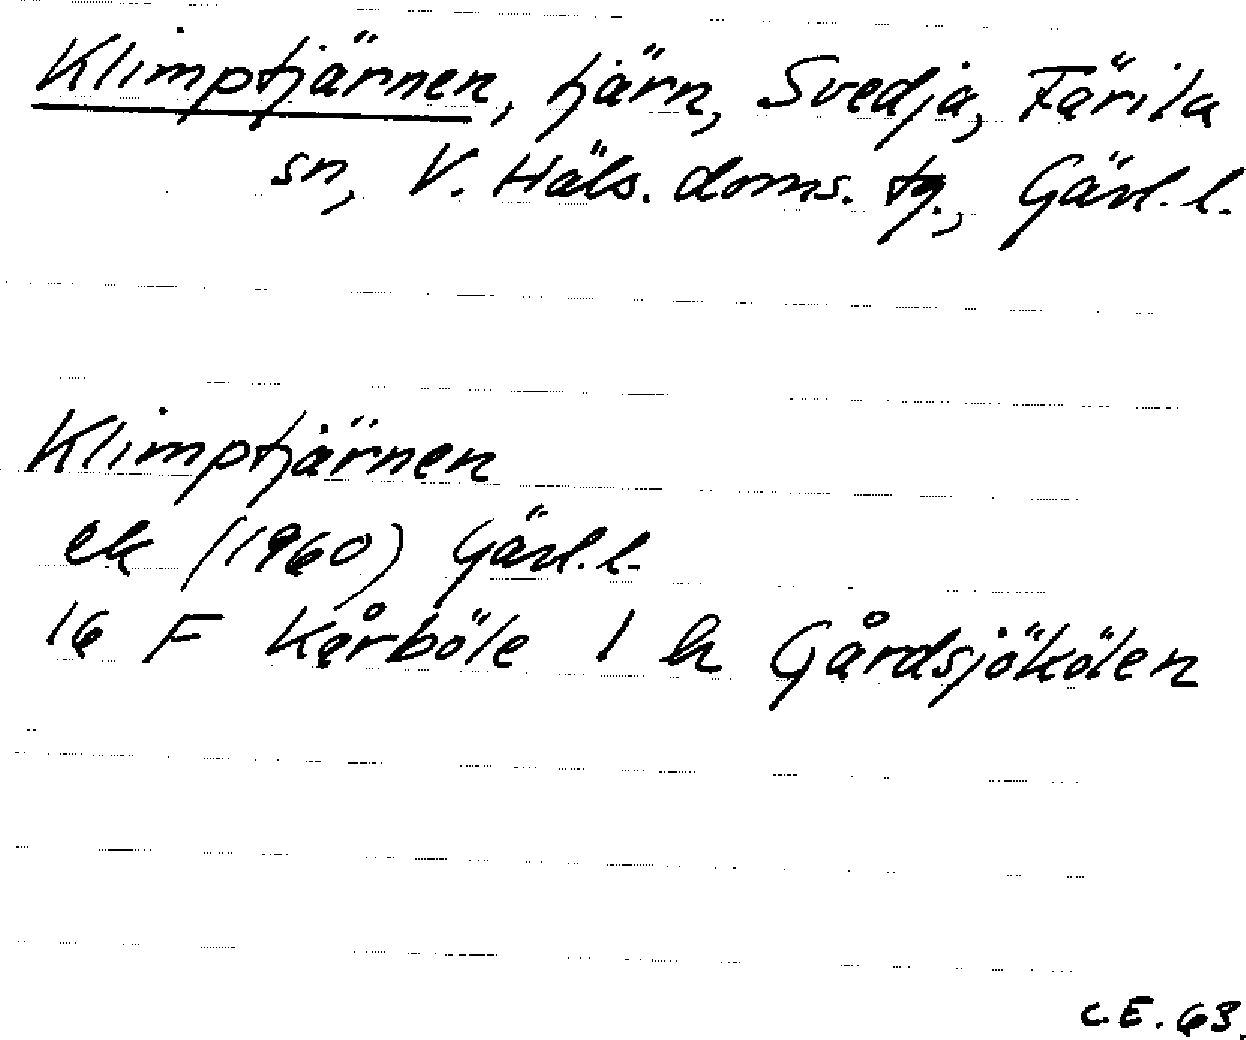 Klimptjärnen, tjärn, Svedja, Färila
sn, V. Häls. doms. tg., Gävl. l.
Klimptjärnen
ek (1960) Gävl. l.
16 F Kårböle 1 h Gårdsjökölen
C.E. 63.